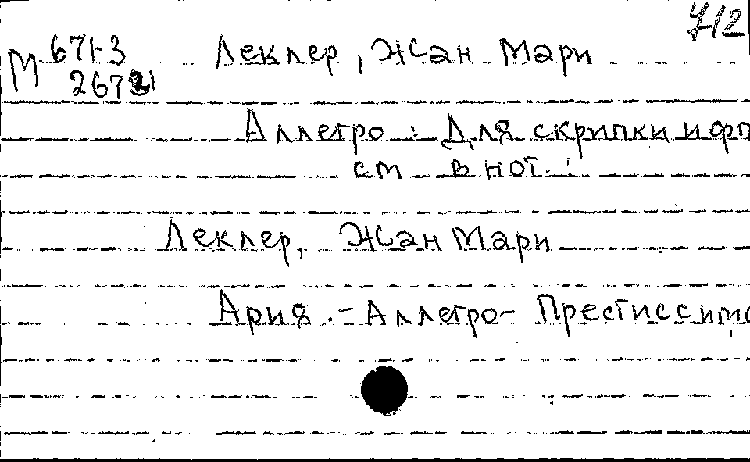 712
М 671-3 Леклер, Жан Мари
Аллегро : Для скрипки и фп
см в нот. :
Леклер, Жан Мари
Ария. - Аллегро - Престиссимо